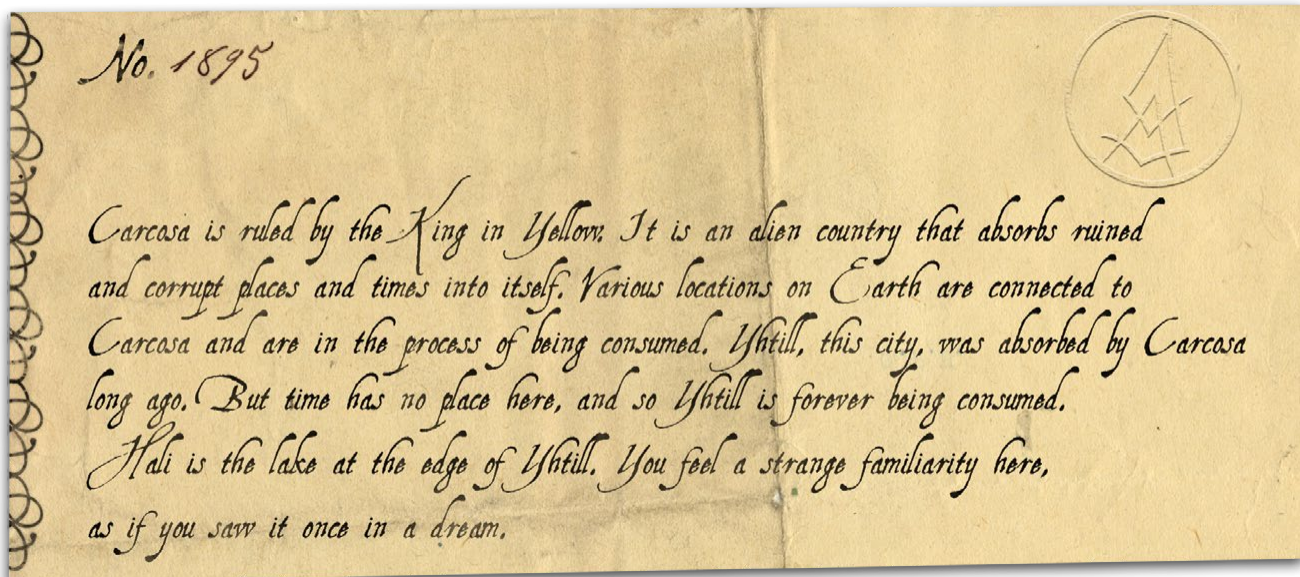 No. 1895
Carcosa is ruled by the King in Yellow. It is an alien country that absorbs ruined
and corrupt places and times into itself. Various locations on Earth are connected to
Carcosa and are in the process of being consumed. Yhtill, this city, was absorbed by Carcosa
long ago. But time has no place here, and so Yhtill is forever being consumed.
Hali is the lake at the edge of Yhtill. You feel a strange familiarity here,
as if you saw it once in a dream.